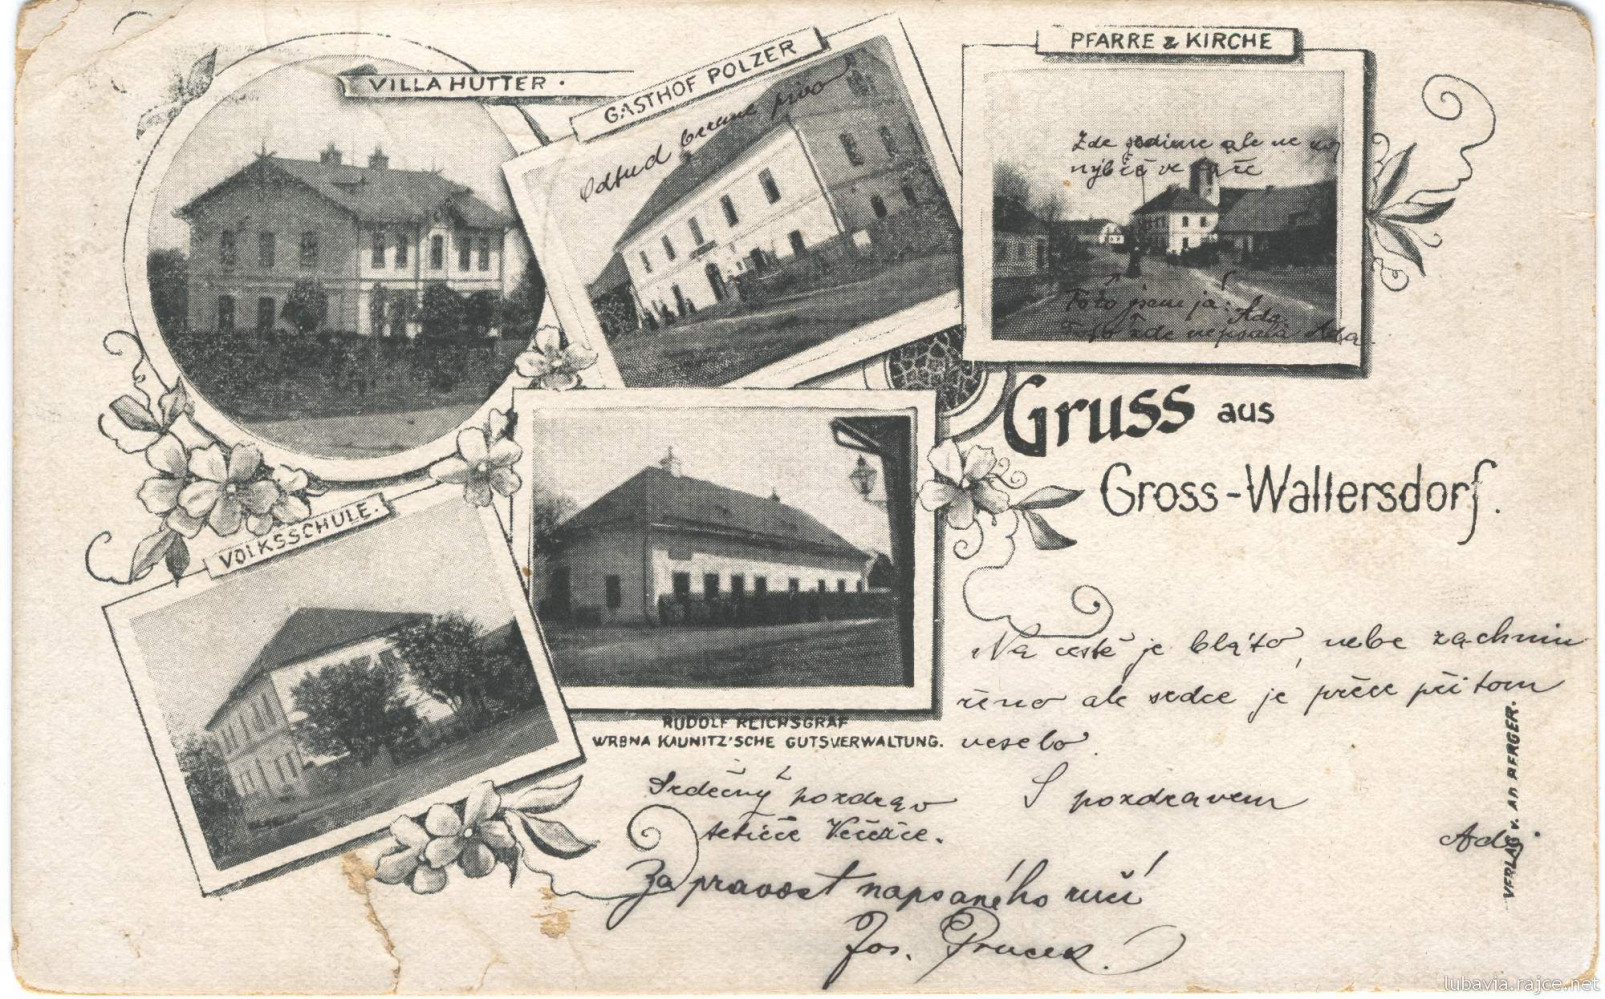 VILLA HUTTER.
GASTHOF POLZER
Odtud bereme pivo
PFARRE & KIRCHE
Zde sedíme ale ne
nýbrž ve faře
Toto jsem já: Ada
Toto zde nejsou Ada
Gruss aus
Gross-Waltersdorf.
VOLKSSCHULE.
RUDOLF REICHSGRAF
WRBNA KAUNITZ'SCHE GUTSVERWALTUNG.
Na cestě je bláto, nebe zachmu
řeno ale srdce je přece při tom
veselo.
Srdečný pozdrav
tetičce Večeřce.
S pozdravem
Ada.
Za pravost napsaného ručí
Jos. Prucek.
VERLAG v. AD. BERGER.
lubavia.rajce.net